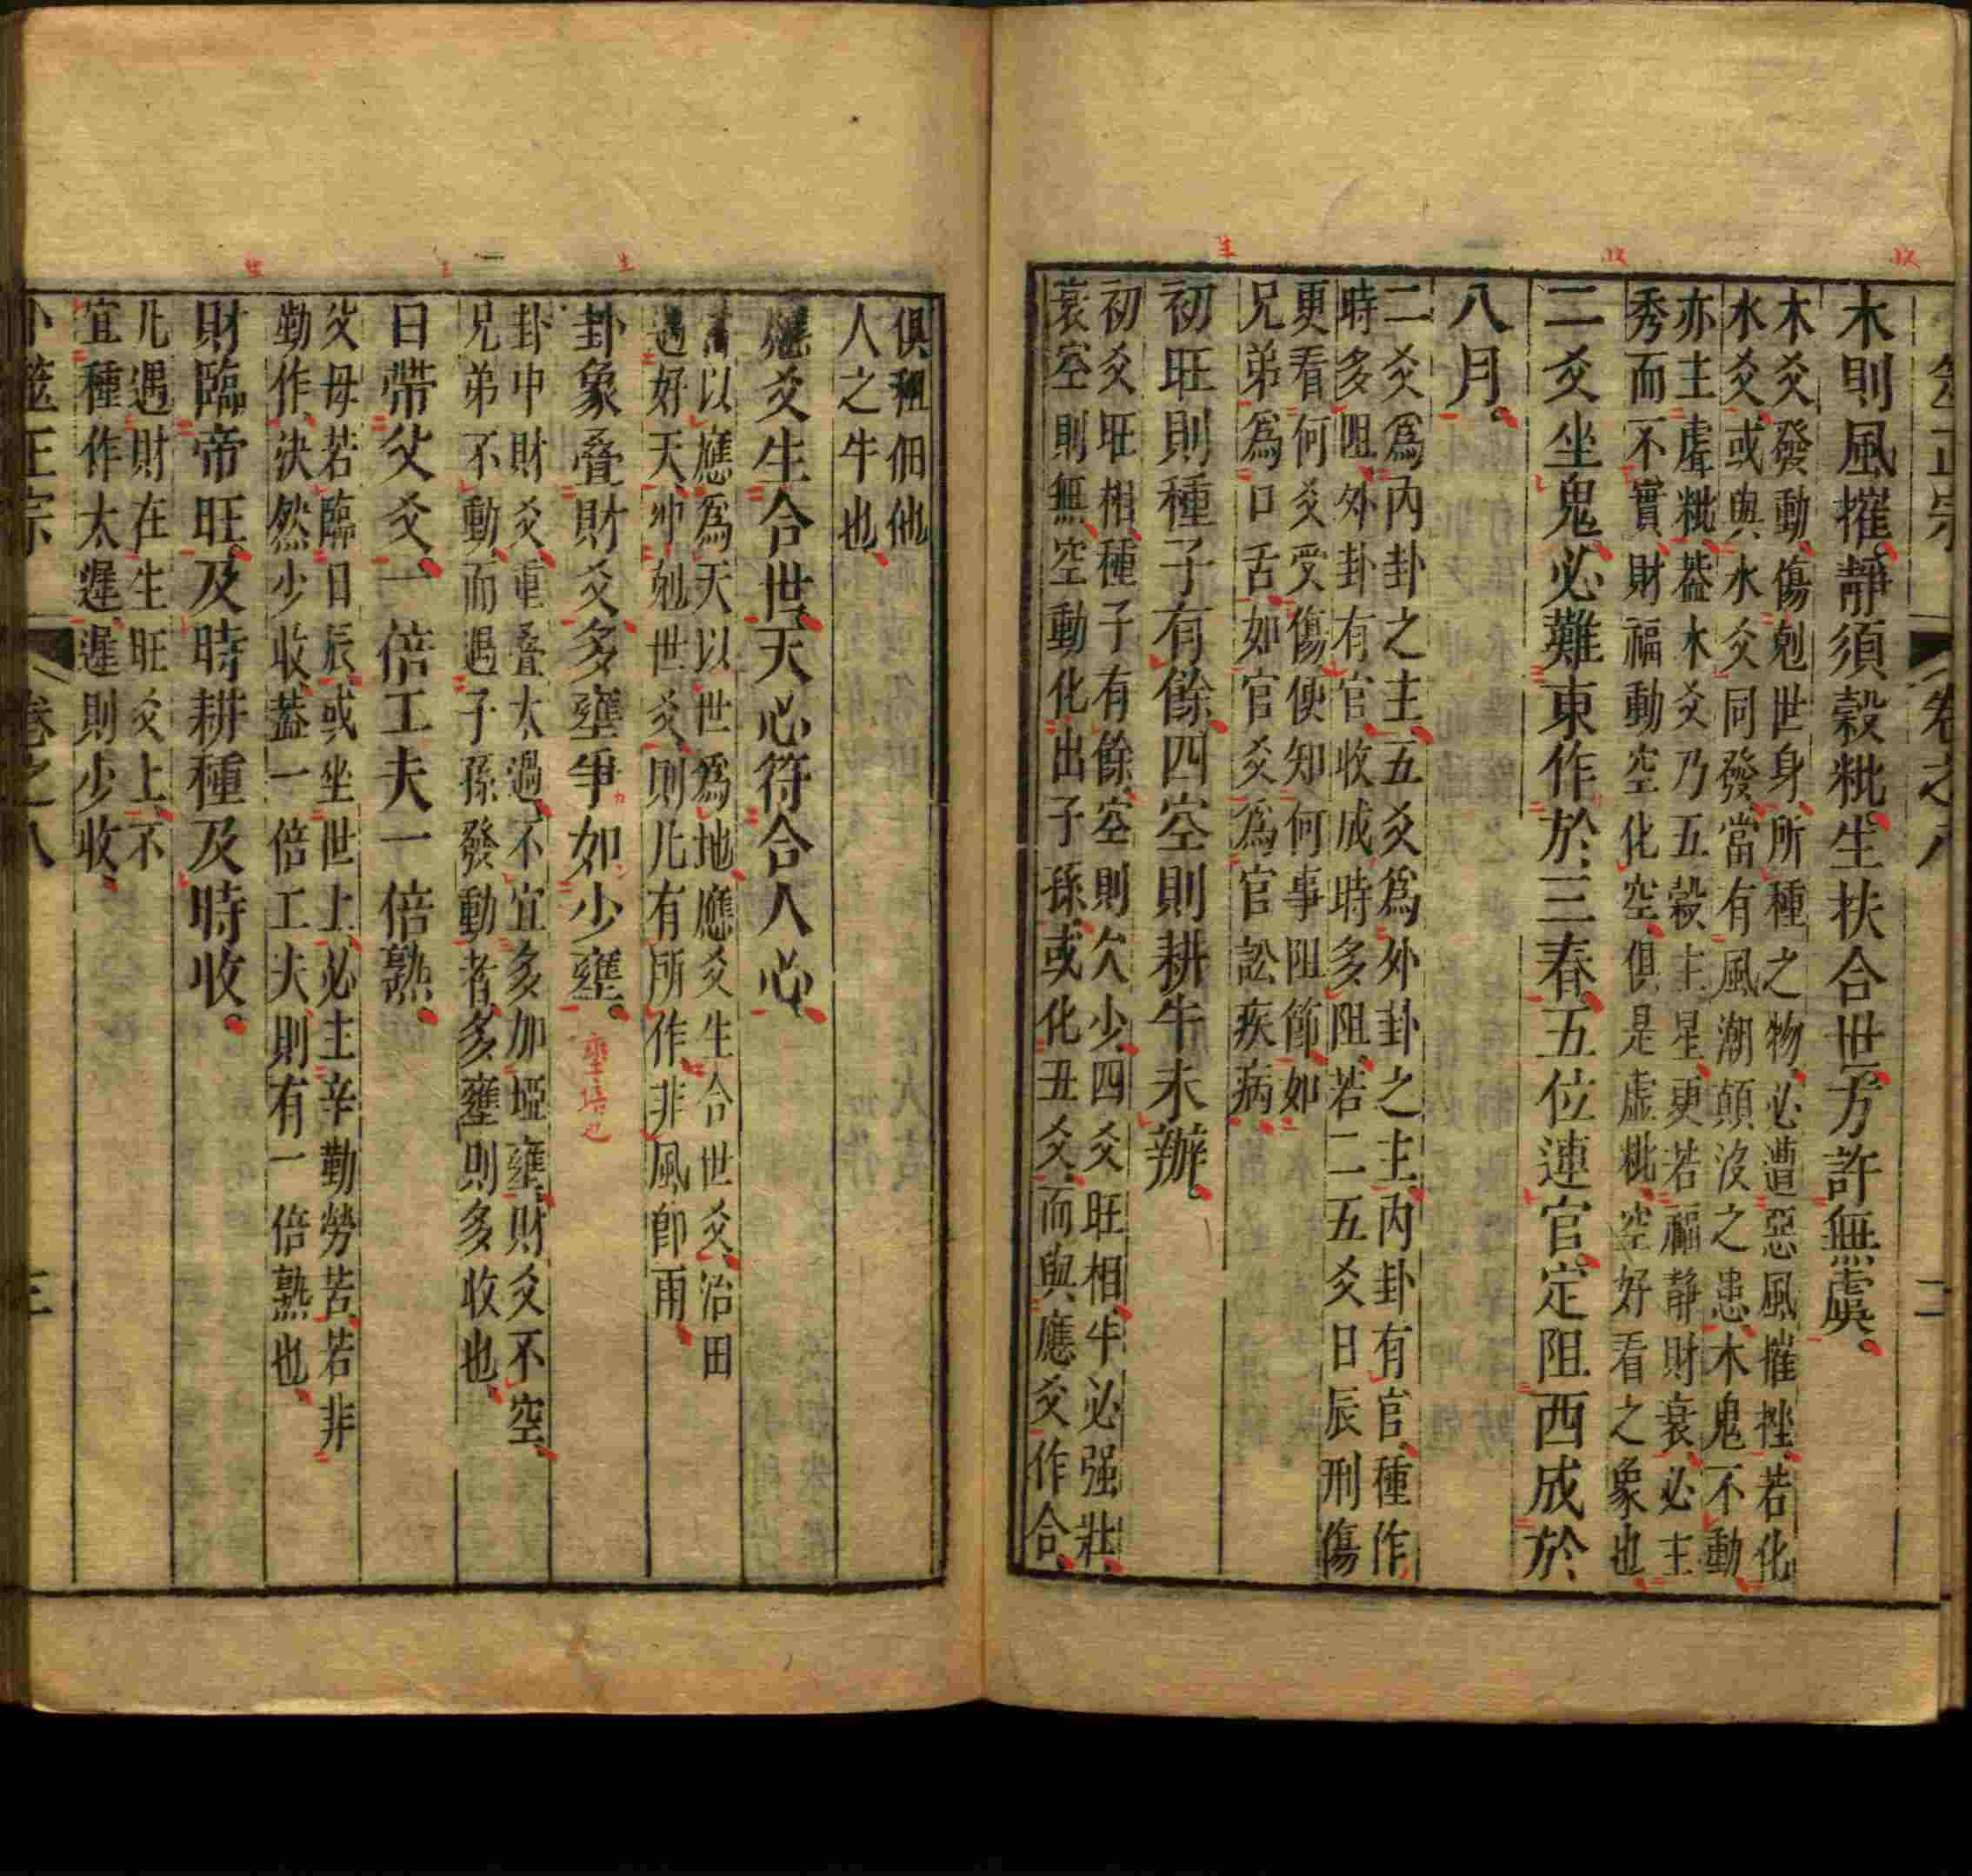 卷之八
二
木則風摧靜須穀粃生扶合世方許無虞
木爻發動傷剋世身所種之物必遭惡風摧挫若化
水爻或與水爻同發當有風潮顛沒之患木鬼不動
亦主虛粃葢木爻乃五穀主星更若福靜財衰必主
秀而不實財福動空化空俱是虛粃空好看之象也
二爻坐鬼必難東作於三春五位連官定阻西成於
八月
二爻爲內卦之主五爻爲外卦之主內卦有官種作
時多阻外卦有官收成時多阻若二五爻日辰刑傷
更看何爻受傷便知何事阻節如
兄弟爲口舌如官爻爲官訟疾病
初旺則種子有餘四空則耕牛未辦
初爻旺相種子有餘空則欠少四爻旺相牛必强壯
衰空則無空動化出子孫或化丑爻而與應爻作合
俱租佃他
人之牛也
應爻生合世天心符合人心
以應爲天以世爲地應爻生合世爻治田
遇好天冲剋世爻則凡有所作非風卽雨
卦象疊財爻多壅爭如少壅
壅培也
卦中財爻重疊太過不宜多加埡壅財爻不空
兄弟不動而遇子孫發動者多壅則多收也
日帶父爻一倍工夫一倍熟
父母若臨日辰或坐世上必主辛勤勞苦若非
勤作決然少收葢一倍工夫則有一倍熟也
財臨帝旺及時耕種及時收
凡遇財在生旺爻上不
宜種作太遲遲則少收
卜筮正宗
卷之八
三